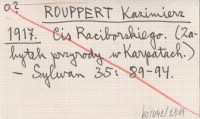 a?
ROUPPERT Kazimierz
1917. Cis Raciborskiego. (Za-
bytek przyrody w Karpatach.)
— Sylwan 35: 89-94.